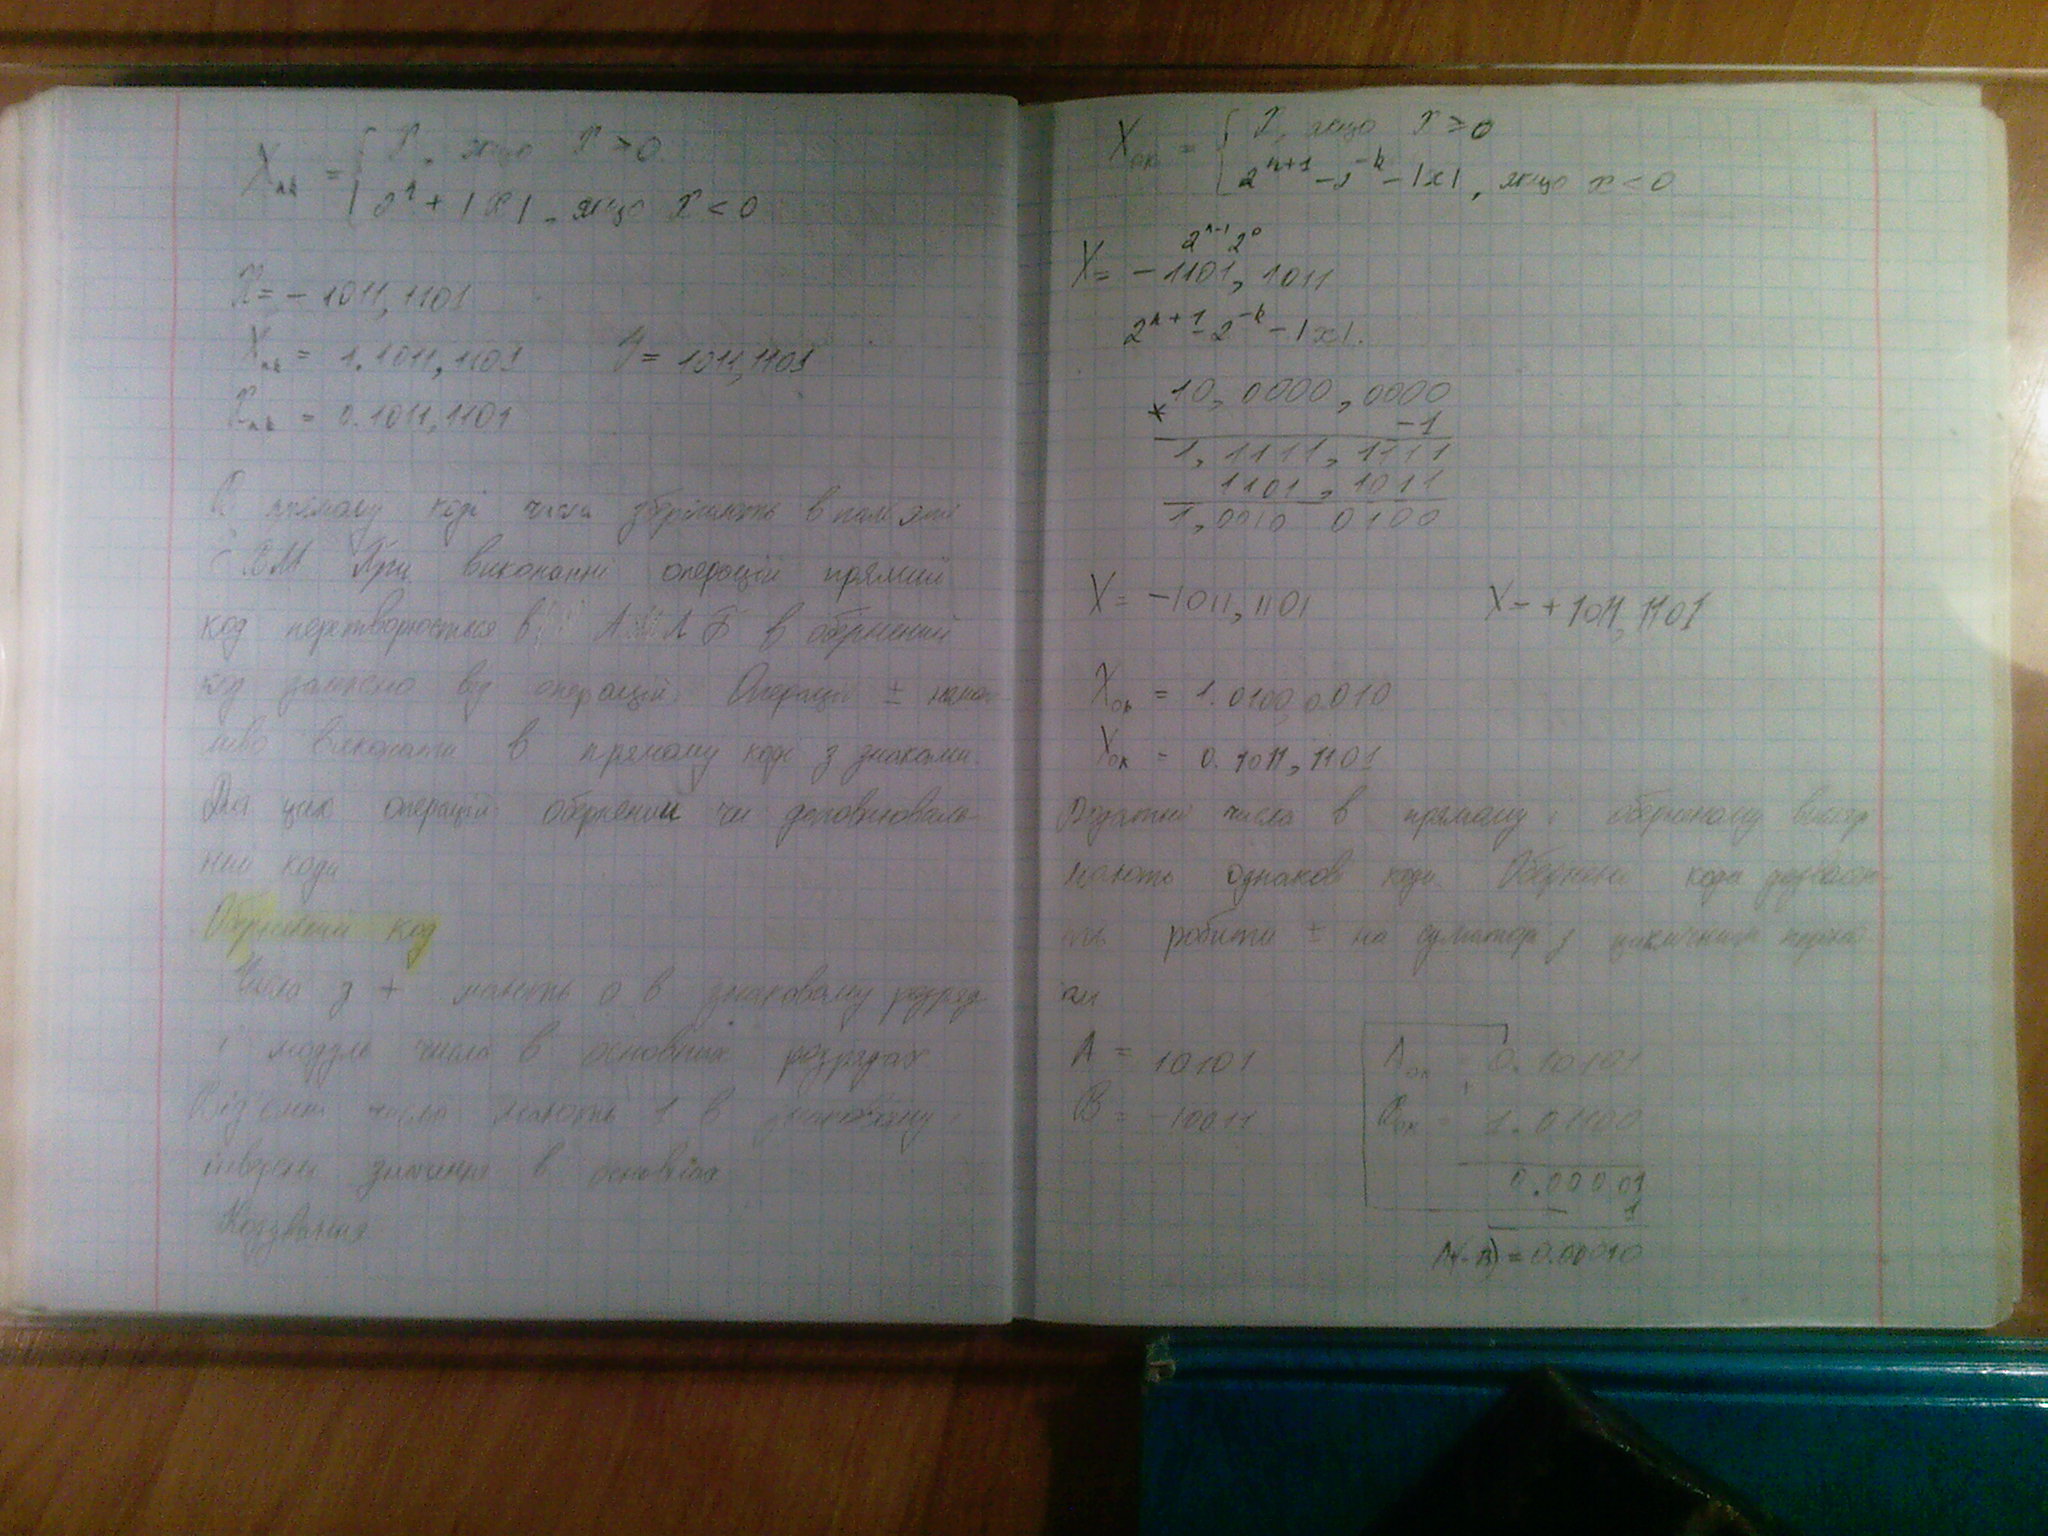 Xпк = { X, якщо X ≥ 0
2ⁿ + |X|, якщо X < 0
X = - 1011,1101
Xпк = 1.1011,1101 Y = 1011,1101
Xпк = 0.1011,1101
В прямому коді числа зберігають в пам'яті
ЕОМ При виконанні операцій прямий
код перетворюється в А Л Б в обернений
код залежно від операцій. Операції ±
виконати в прямому коді з знаками.
Для цих операцій обернений чи доповнюваль
ний коди
Обернений код
Числа з + мають 0 в знаковому розряді
і модуль числа в основних розрядах
Від'ємні числа мають 1 в знаковому і
інверсні значення в основних
Кодування
Xок = { X, якщо X ≥ 0
2ⁿ⁺¹ - 2⁻ᵏ - |x|, якщо x < 0
2ⁿ⁻¹ 2⁰
X = - 1101,1011
2ⁿ⁺¹ - 2⁻ᵏ - |x|.
10,0000,0000
-1
1,1111,1111
1101,1011
1,0010 0100
X = -1011,1101 X = +1011,1101
Xок = 1.0100 0010
Xок = 0.1011,1101
Додатні числа в прямому і оберненому
мають однакові коди Обернені коди дозволя
ють робити ± на суматорі з циклічним перено
ом
A = 10101 Aок = 0.10101
B = -10011 Bок = 1.01100
0.00001
1
A(-B) = 0.00010